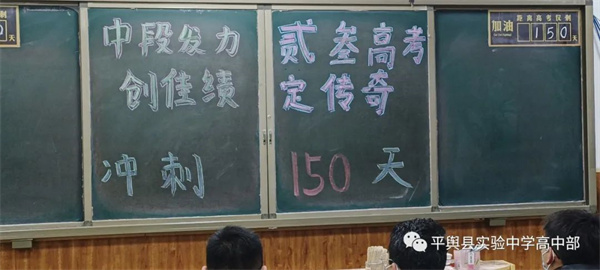 中段发力
创佳绩
冲刺
贰叁高考
定传奇
150天
加油
距离高考仅剩
150天
0
天
平舆县实验中学高中部